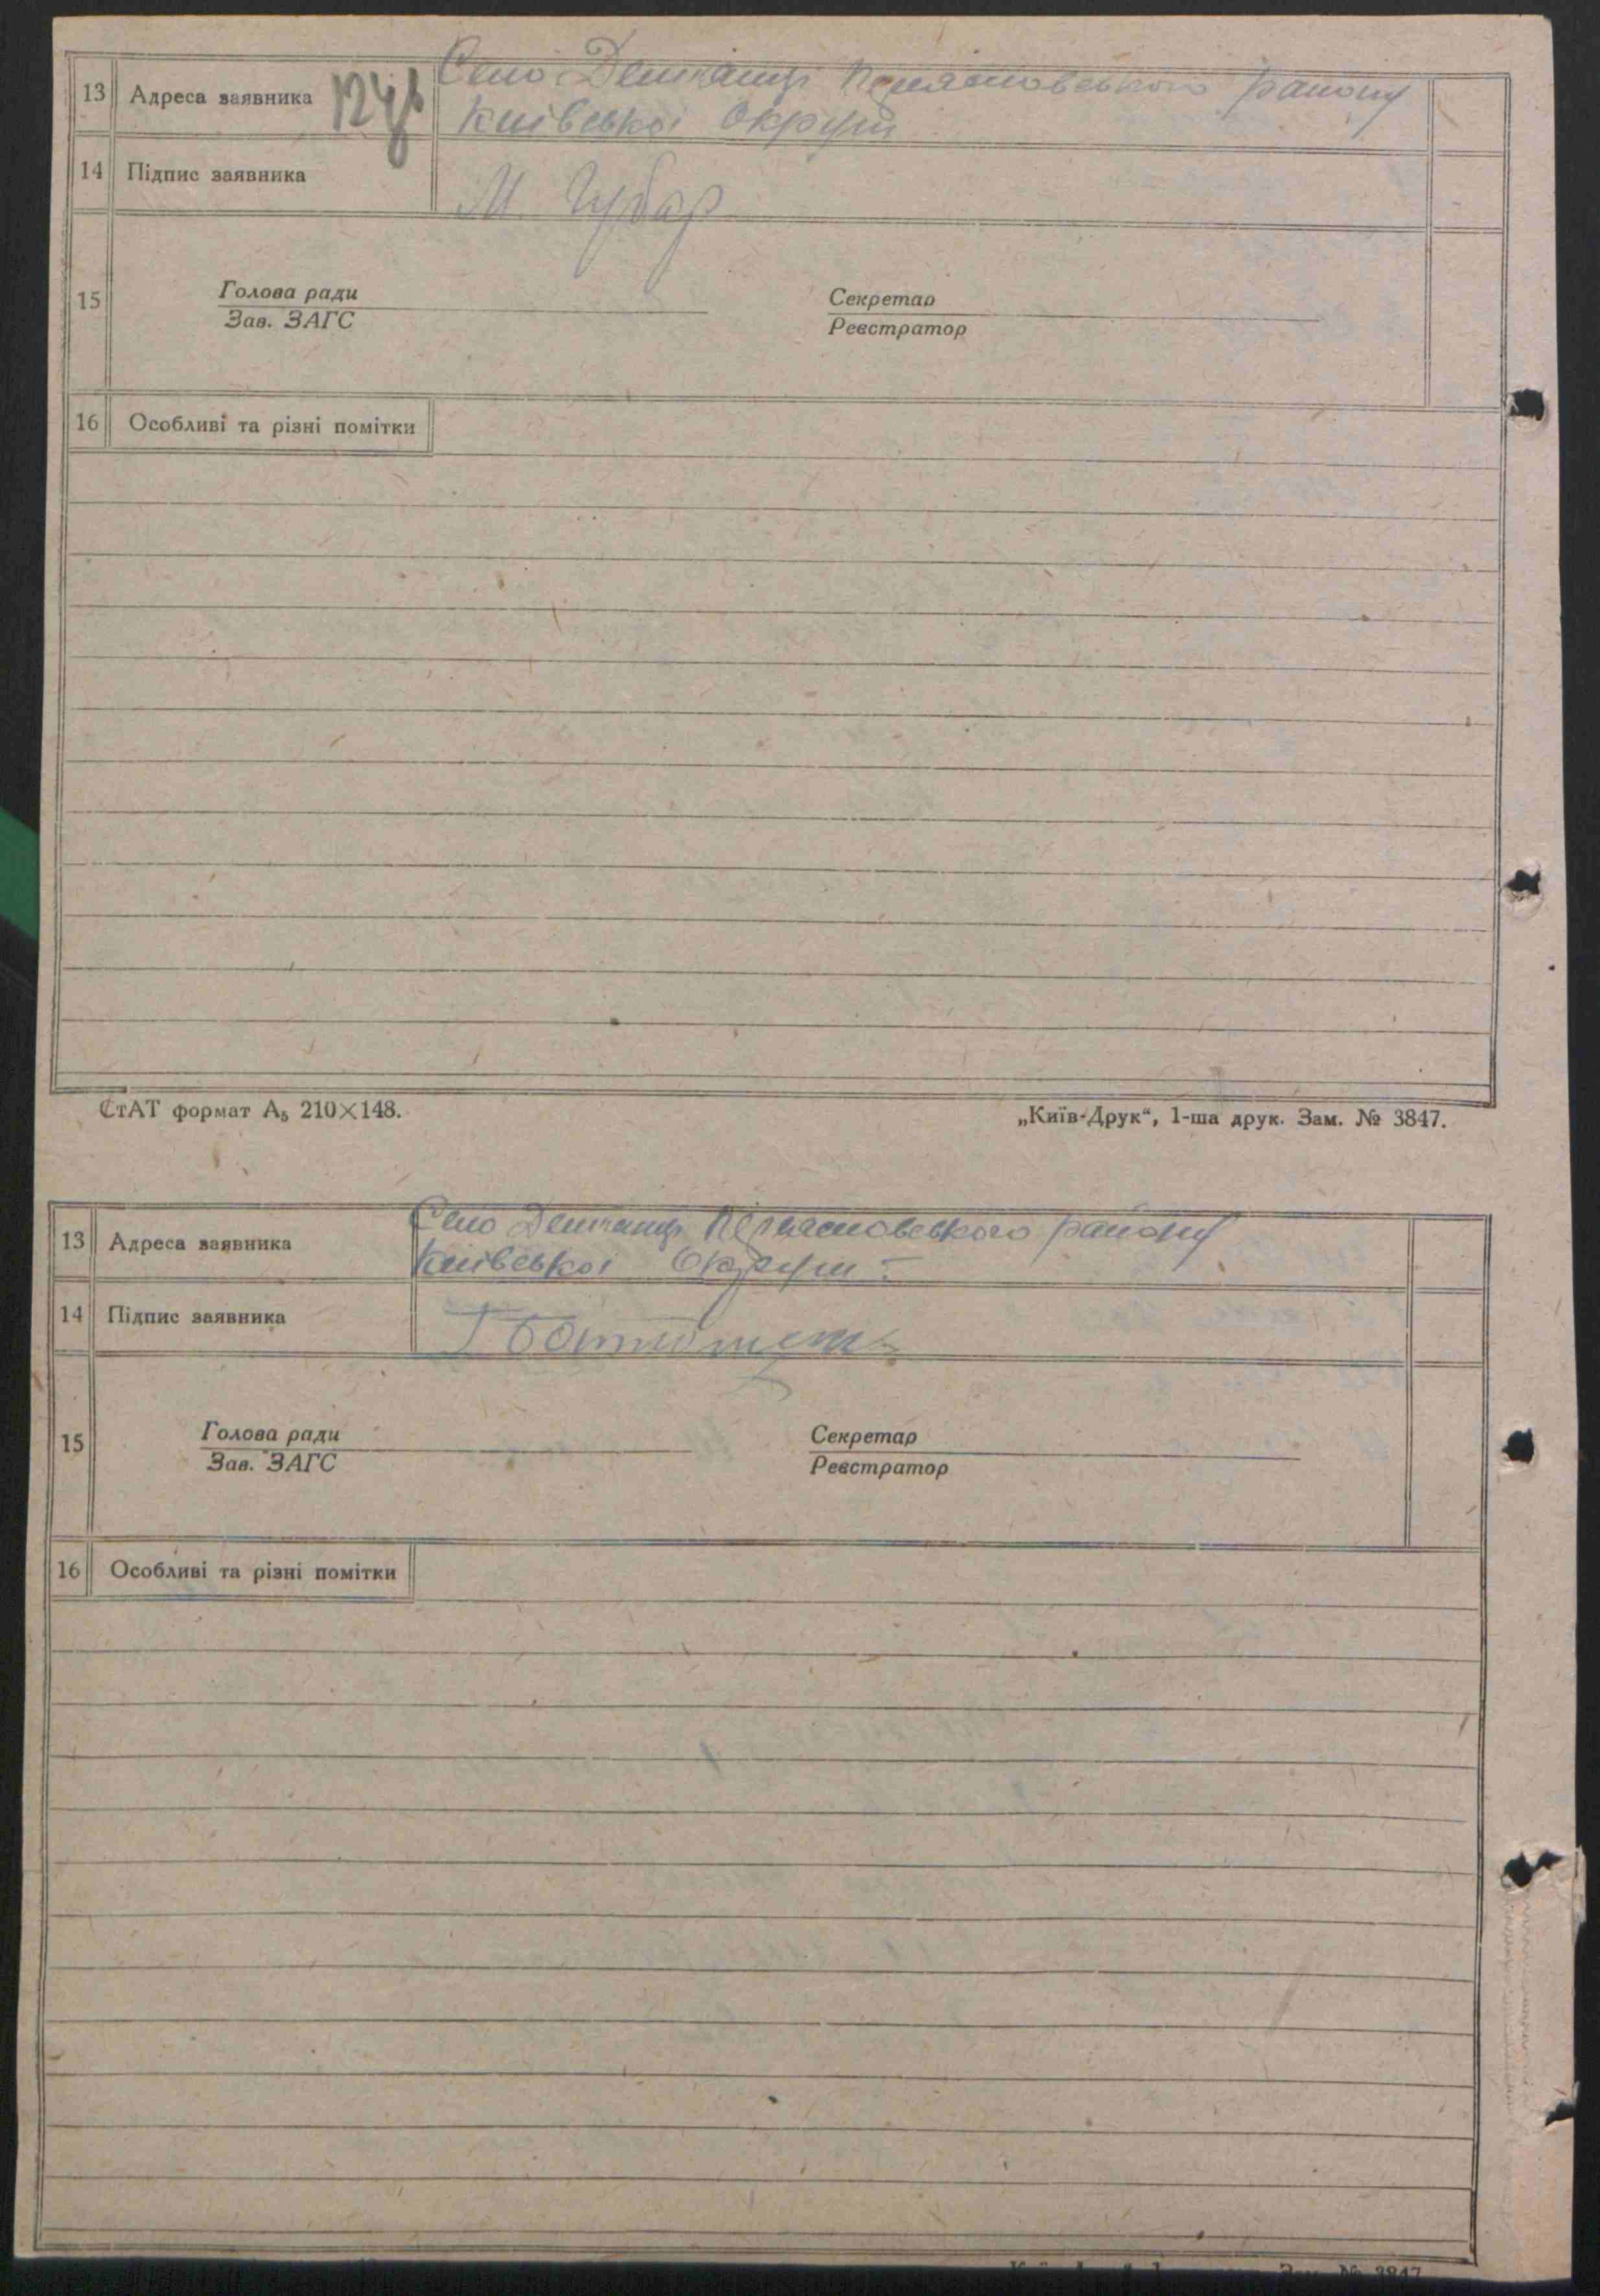 13 Адреса заявника 124 Село Демʼянці Переяславського району
Київської Округи
14 Підпис заявника М. Губар
15 Голова ради Секретар
Зав. ЗАГС Реєстратор
16 Особливі та різні помітки
СтАТ формат А₅ 210×148. „Київ-Друк“, 1-ша друк. Зам. № 3847.
13 Адреса заявника Село Демʼянці району
Київської Округи
14 Підпис заявника
15 Голова ради Секретар
Зав. ЗАГС Реєстратор
16 Особливі та різні помітки
Зам. № 3847